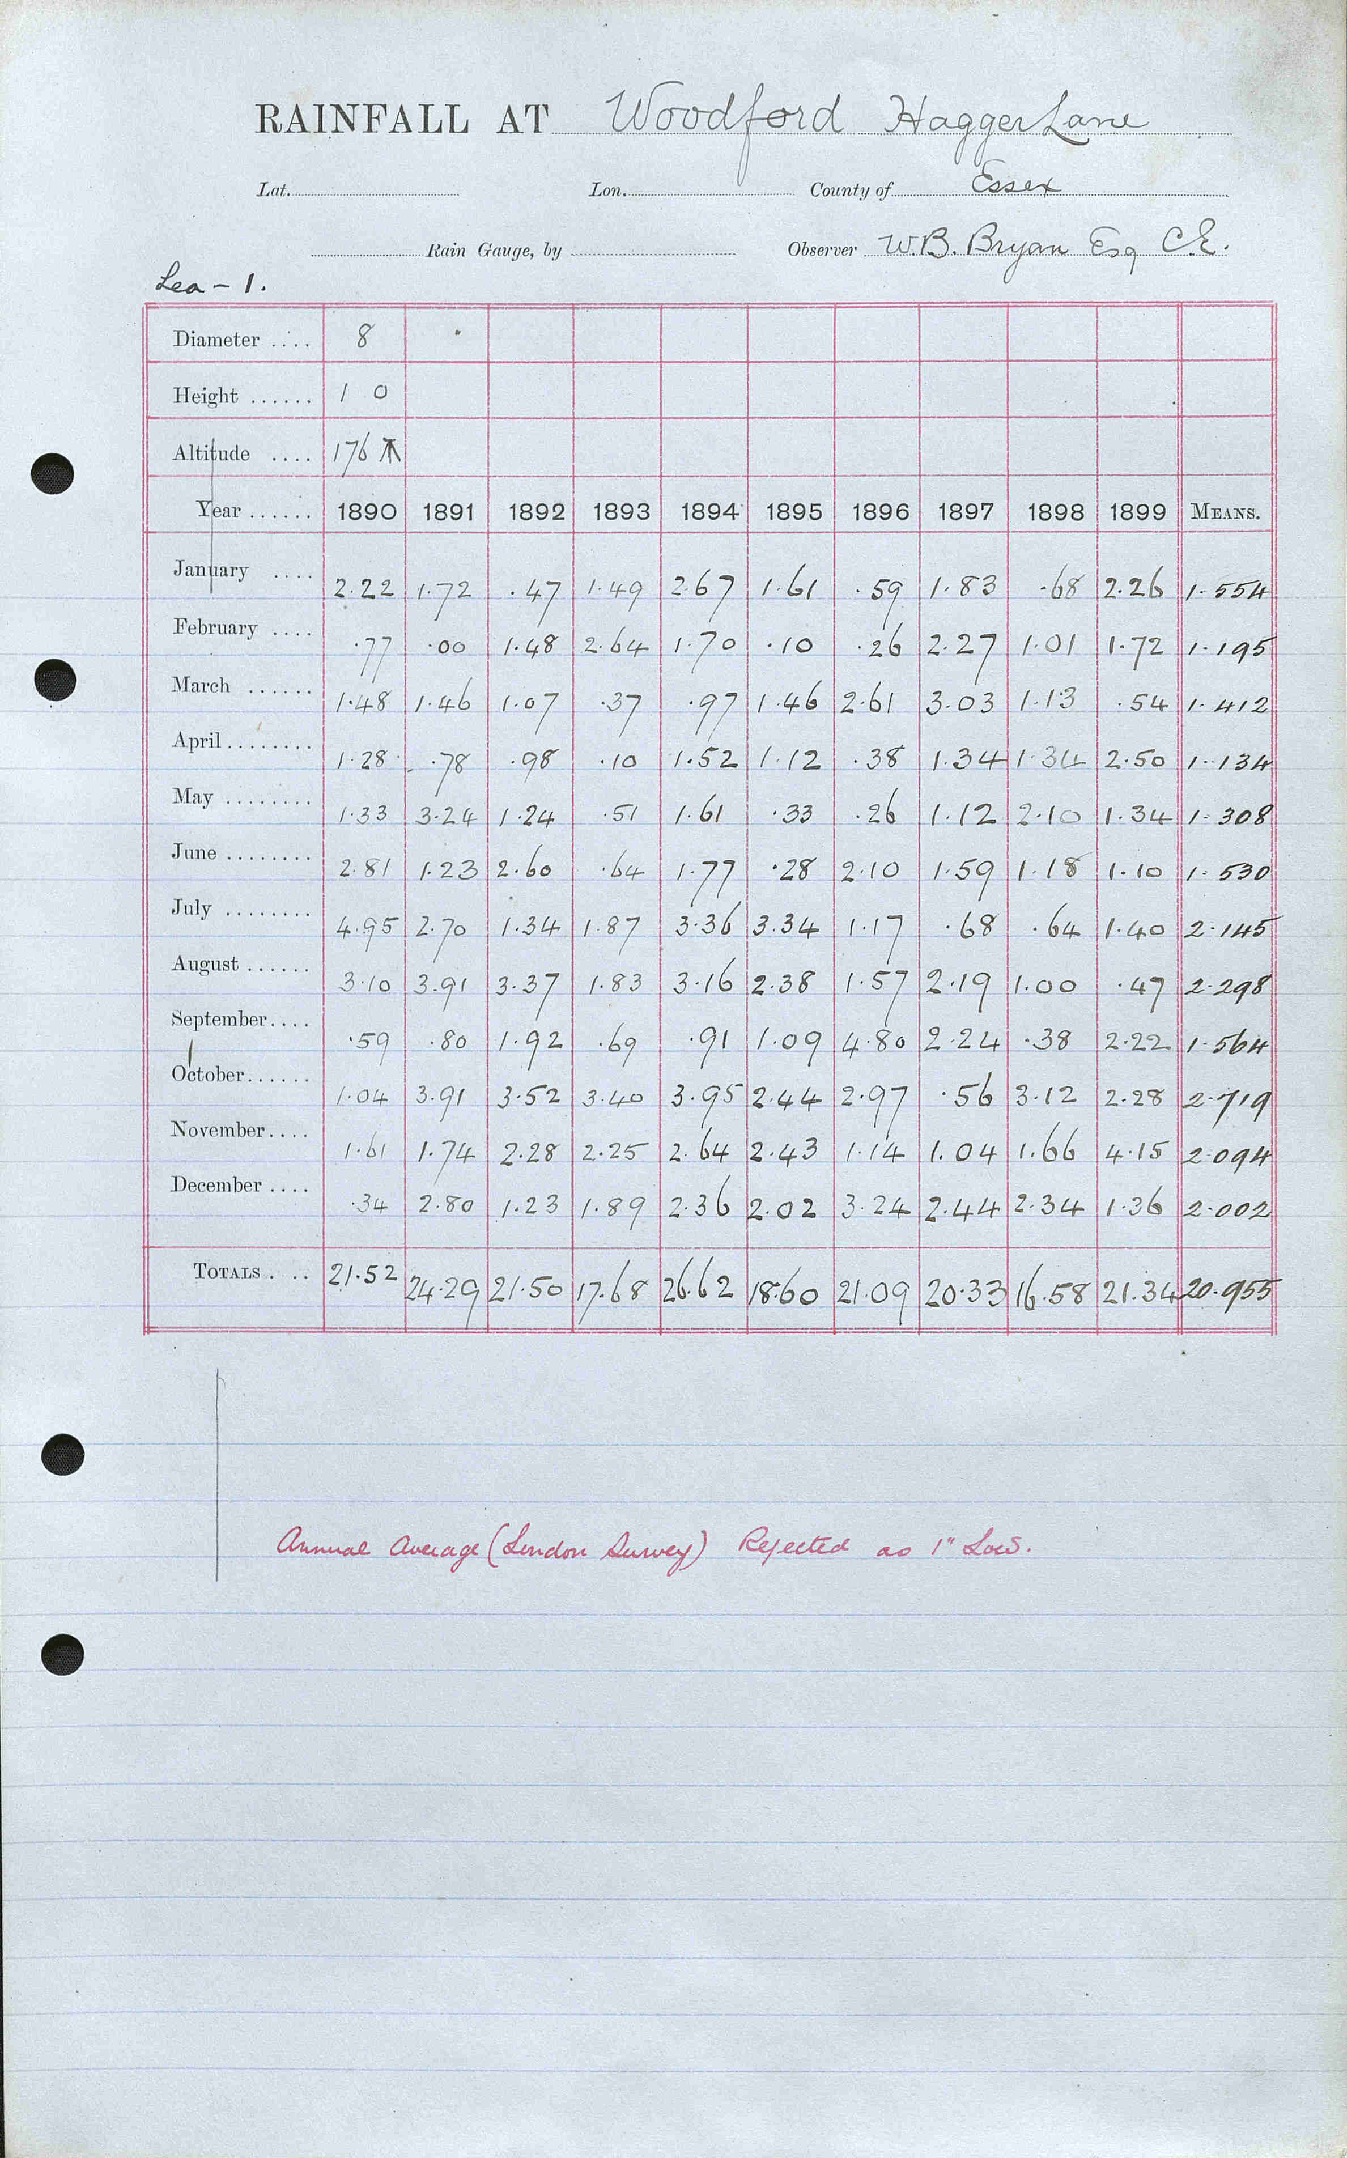 RAINFALL AT Woodford Hagger Lane
Lat. Lon. County of Essex
Rain Gauge, by Observer W.B. Bryan Esq C.E.
Lea - 1.
Diameter .... 8
Height ...... 1 0
Altitude .... 176
Year ...... 1890 1891 1892 1893 1894 1895 1896 1897 1898 1899 MEANS.
January .... 2.22 1.72 .47 1.49 2.67 1.61 .59 1.83 .68 2.26 1.554
February .... .77 .00 1.48 2.64 1.70 .10 .26 2.27 1.01 1.72 1.195
March ...... 1.48 1.46 1.07 .37 .97 1.46 2.61 3.03 1.13 .54 1.412
April ........ 1.28 .78 .98 .10 1.52 1.12 .38 1.34 1.34 2.50 1.134
May ........ 1.33 3.24 1.24 .51 1.61 .33 .26 1.12 2.10 1.34 1.308
June ........ 2.81 1.23 2.60 .64 1.77 .28 2.10 1.59 1.18 1.10 1.530
July ........ 4.95 2.70 1.34 1.87 3.36 3.34 1.17 .68 .64 1.40 2.145
August ...... 3.10 3.91 3.37 1.83 3.16 2.38 1.57 2.19 1.00 .47 2.298
September.... .59 .80 1.92 .69 .91 1.09 4.80 2.24 .38 2.22 1.564
October...... 1.04 3.91 3.52 3.40 3.95 2.44 2.97 .56 3.12 2.28 2.719
November.... 1.61 1.74 2.28 2.25 2.64 2.43 1.14 1.04 1.66 4.15 2.094
December .... .34 2.80 1.23 1.89 2.36 2.02 3.24 2.44 2.34 1.36 2.002
TOTALS. .. 21.52 24.29 21.50 17.68 26.62 18.60 21.09 20.33 16.58 21.34 20.955
Annual Average (London Survey) Rejected as 1" Low.